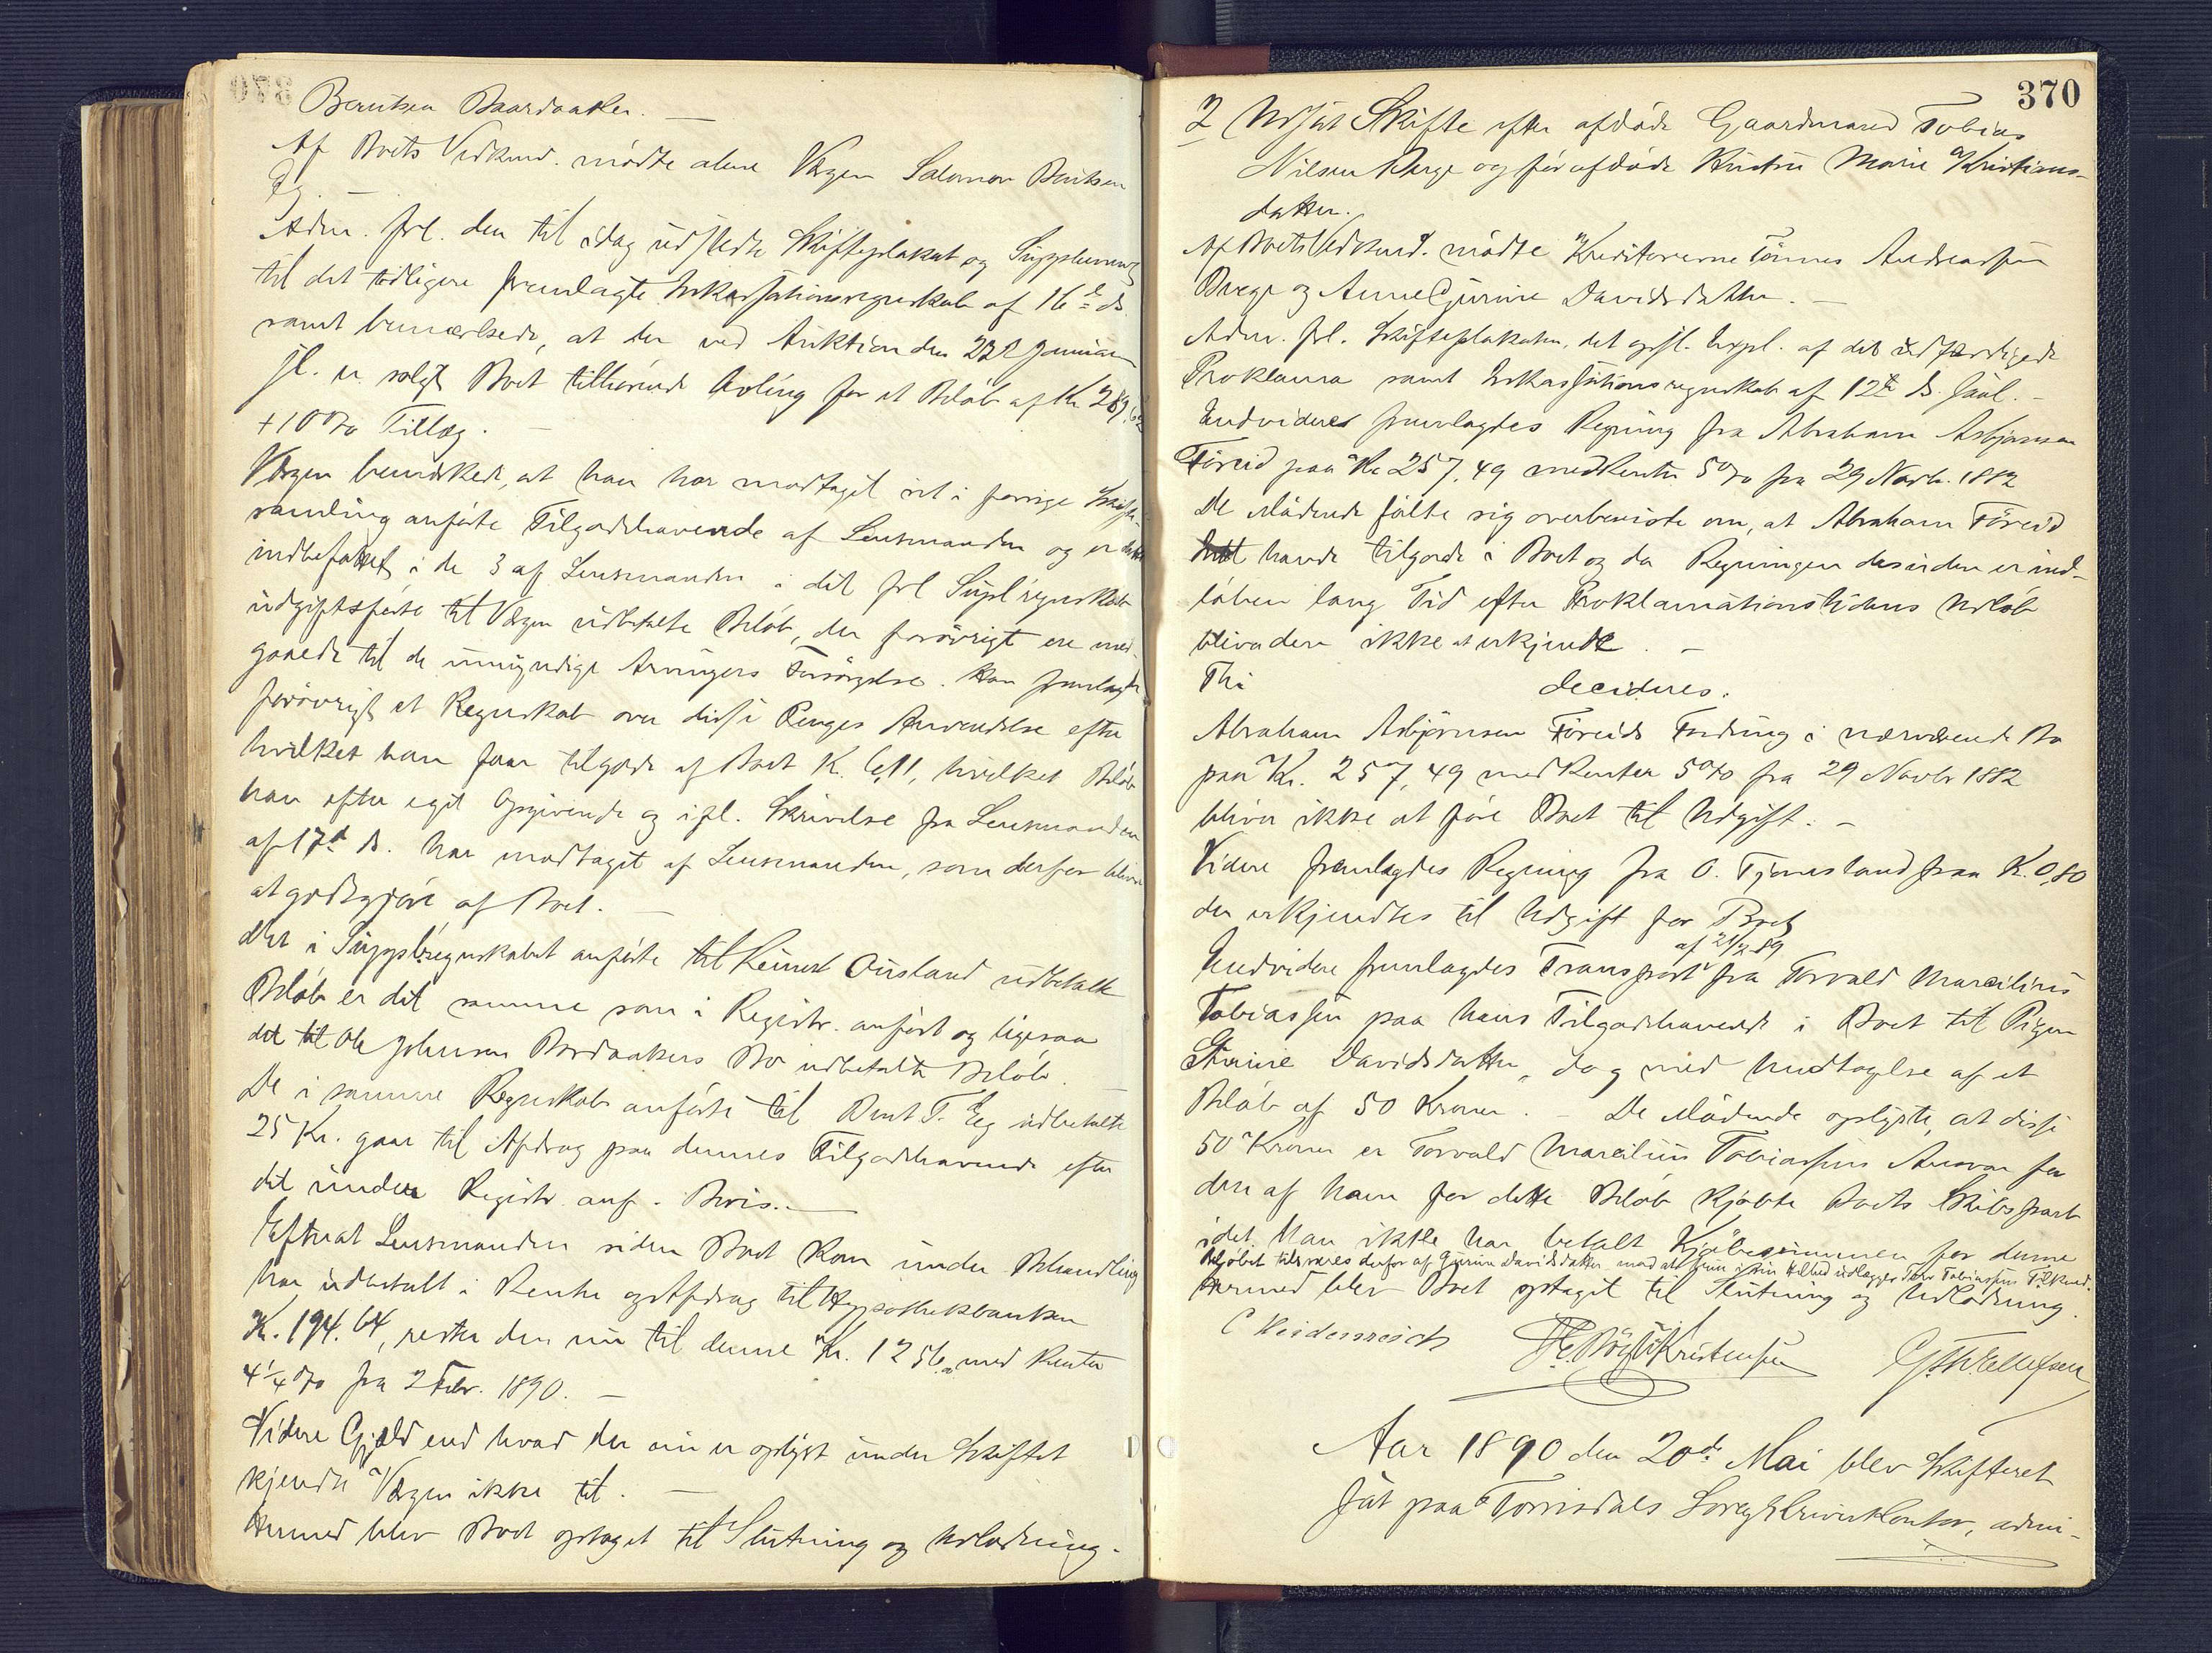 Berntsen Baardaaker. —
Af Boets Vedkmd. mødte alene Værgen Salomon Berntsen
Eg. —
Adm. frl. den til idag udstedte Skifteplakat og Supplement
til det tidligere fremlagte Inkassationsregnskab af 16de ds.
samt bemærkede, at der ved Auktion den 23de Januar
jl. er solgt Boet tilhørende Avling for et Beløb af Kr.
+ 10 % Tillæg. —
Værgen bemærkede, at han har modtaget det i forrige Skifte-
samling anførte Tilgodehavende af Lensmanden og er dette
indbefattet i de 3 af Lensmanden i det frl. Supl. regnskab
udgiftsførte til Værgen udbetalte Beløb, der forøvrigt ere med-
gaaede til de umyndige Arvingers Forsørgelse. Han fremlagde
forøvrigt et Regnskab over disse Penges Anvendelse efter
hvilket han faar tilgode af Boet K. 6,11, hvilket Beløb
han efter eget Opgivende og ifl. Skrivelse fra Lensmanden
af 17de ds. har modtaget af Lensmanden, som derfor bliver
at godtgjøre af Boet. —
Det i Suppl. regnskabet anførte til Reinert Ousland udbetalte
Beløb er det samme som i Registr. anført og ligesaa
det til Ole Johnsen Baardaakers Bo udbetalte Beløb. —
De i samme Regnskab anførte til Bernt T. Eg udbetalte
25 Kr. gaar til Afdrag paa dennes Tilgodehavende efter
det under Registr. anf. Bevis. —
Efterat Lensmanden siden Boet kom under Behandling
har udbetalt i Renter og Afdrag til Hypothekbanken
K. 194.64, rester der nu til denne Kr. 1256 med Renter
4 1/4 % fra 2 Febr. 1890. —
Videre Gjæld end hvad der nu er oplyst under Skiftet
kjendte Værgen ikke til. —
Hermed blev Boet optaget til Slutning og Udlodning.
370
2 Udsat Skifte efter afdøde Gaardmand Tobias
Nilsen Berge og førafdøde Hustru Marie Kristians-
datter.
Af Boets Vedkmd. mødte Kreditorerne Tønnes Andreassen
Berge og Anne Gurine Davidsdatter. —
Adm. frl. Skifteplakaten, det opsl. Expl. af det udfærdigede
Proklama samt Inkassationsregnskab af 12te ds. saal. —
Endvidere fremlagdes Regning fra Abraham Asbjørnsen
Føreid paa Kr. 257,49 med Renter 5 % fra 29 Novb. 1882
De Mødende følte sig overbeviste om, at Abraham Føreid
Intet havde tilgode i Boet og da Regningen desuden er ind-
løben lang Tid efter Proklamationstidens Udløb
bliver den ikke at erkjende. —
Thi decideres:
Abraham Asbjørnsen Føreids Fordring i nærværende Bo
paa Kr. 257,49 med Renter 5 % fra 29 Novbr 1882
bliver ikke at føre Boet til Udgift. —
Videre fremlagdes Regning fra O. Tjomsland paa K. 0,80
der erkjendtes til Udgift for Boet
af 21/2 89
Endvidere fremlagdes Transport fra Torvald Marcilius
Tobiassen paa hans Tilgodehavende i Boet til Pigen
Gurine Davidsdatter, dog med Undtagelse af et
Beløb af 50 Kroner. — De Mødende oplyste, at disse
50 Kroner er Torvald Marcilius Tobiassens Ansvar for
den af ham for dette Beløb kjøbte Boets Skibspart
idet Han ikke har betalt Kjøbesummen for denne
Beløbet tilsvares derfor af Gurine Davidsdatter mod at hun i sin Helhed udlægges Torv. Tobiassens Tilkmd.
Hermed blev Boet optaget til Slutning og Udlodning.
C Heidenreich Kristensen G. Th. Ellefsen
Aar 1890 den 20de Mai blev Skifteret
sat paa Torrisdals Sorenskriverkontor, admi-